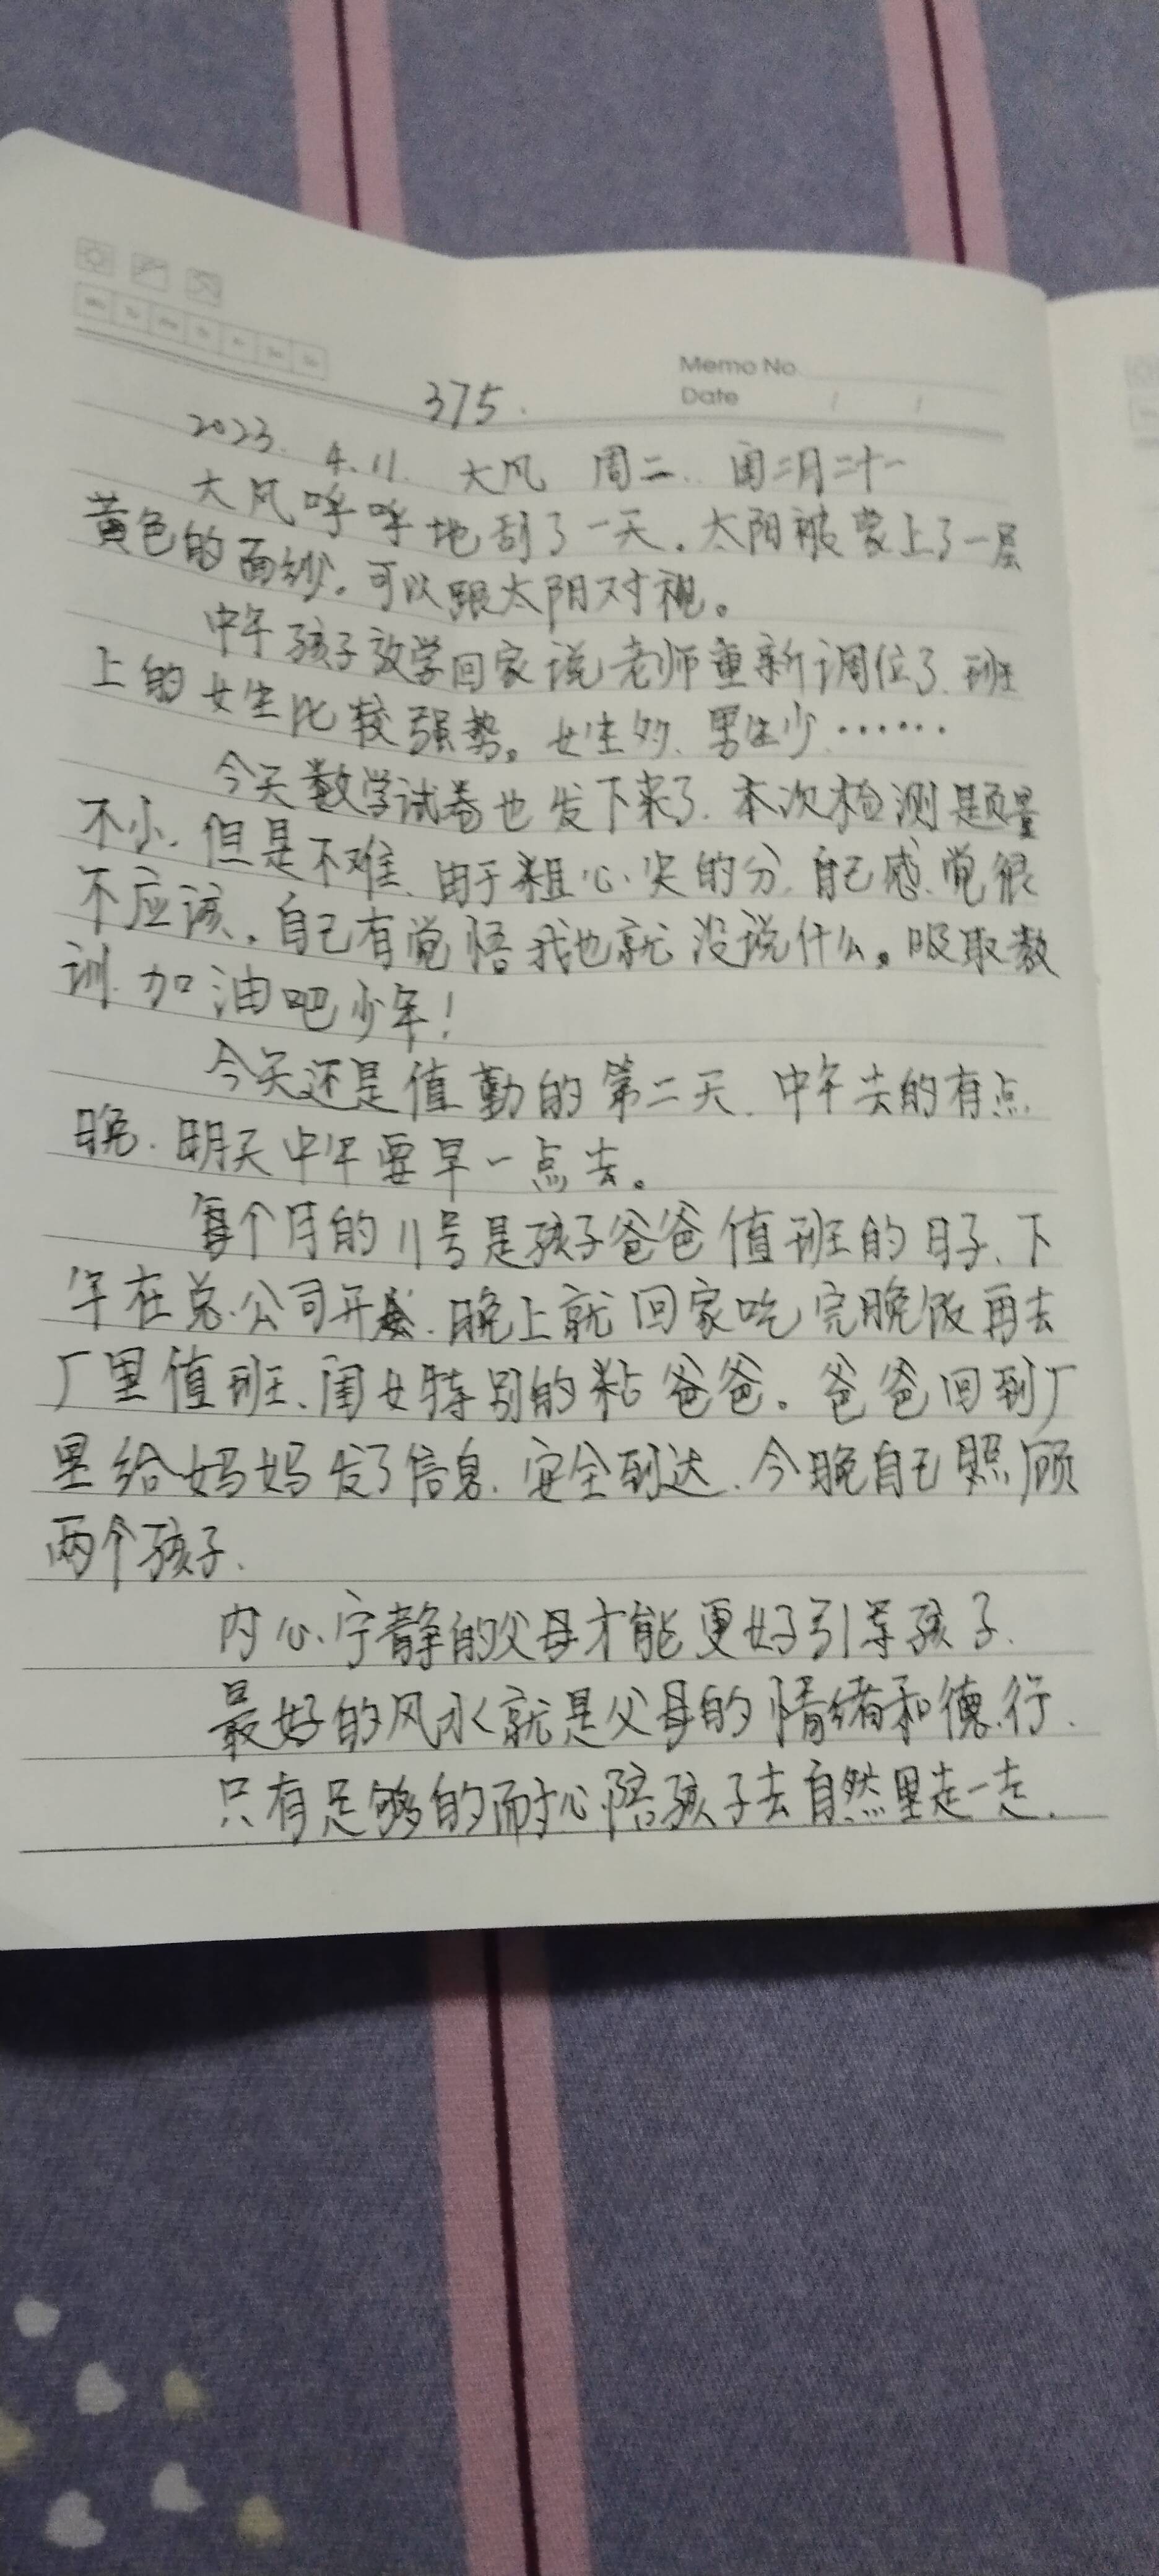 Memo No.
Date / /
375.
2023. 4.11. 大风 周二. 闰二月二十一
大风呼呼地刮了一天。太阳被蒙上了一层
黄色的面纱。可以跟太阳对视。
中午孩子放学回家说老师重新调位了.班
上的女生比较强势。女生多、男生少……
今天数学试卷也发下来了.本次检测题量
不小.但是不难、由于粗心失的分.自己感觉很
不应该。自己有觉悟我也就没说什么。吸取教
训.加油吧少年!
今天还是值勤的第二天.中午去的有点
晚.明天中午要早一点去。
每个月的11号是孩子爸爸值班的日子、下
午在总公司开会.晚上就回家吃完晚饭再去
厂里值班、闺女特别的粘爸爸。爸爸回到厂
里给妈妈发了信息.安全到达.今晚自己照顾
两个孩子.
内心宁静的父母才能更好引导孩子.
最好的风水就是父母的情绪和德行.
只有足够的耐心陪孩子去自然里走一走.